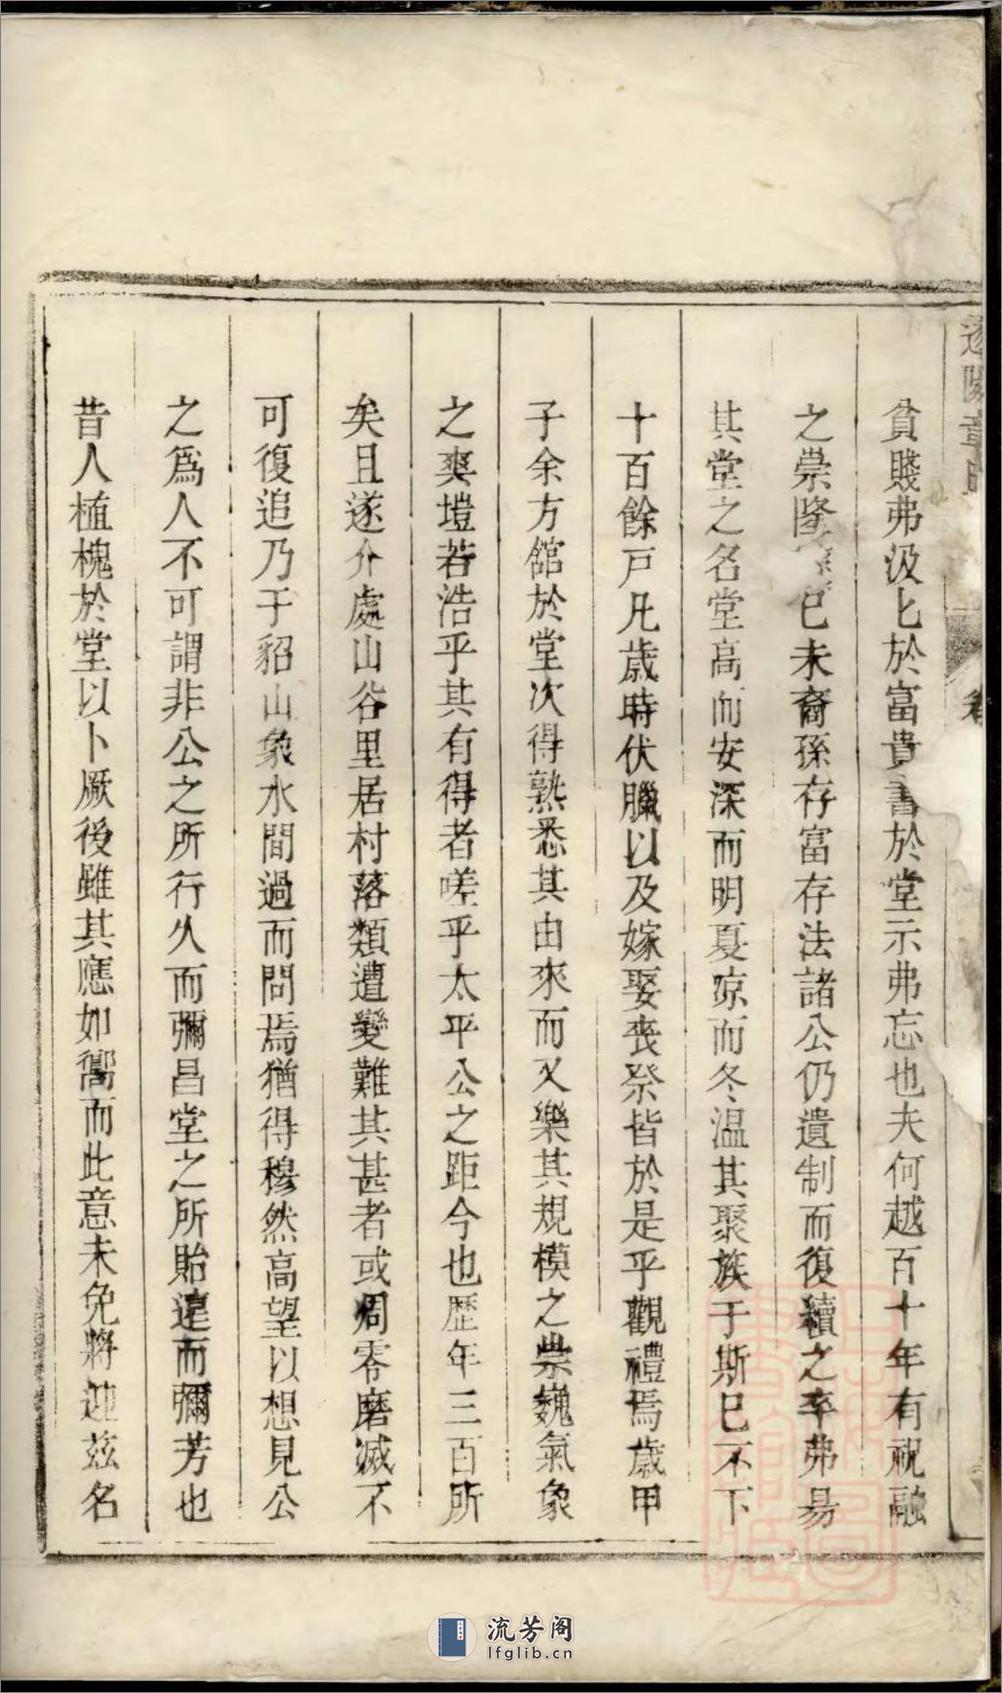 貧賤弗汲匕於富貴書於堂示弗忘也夫何越百十年有祝融
之崇隆 巳未裔孫存富存法諸公仍遺制而復續之卒弗易
其堂之名堂高而安深而明夏凉而冬温其聚族于斯巳不下
十百餘戸凡歲時伏臘以及嫁娶喪祭皆於是乎觀禮焉歲甲
子余方舘於堂次得熟悉其由來而又樂其規模之崇巍氣象
之爽塏若浩乎其有得者嗟乎太平公之距今也歷年三百所
矣且遂介處山谷里居村落類遭變難其甚者或凋零磨滅不
可復追乃于貂山象水間過而問焉猶得穆然高望以想見公
之爲人不可謂非公之所行久而彌昌堂之所貽遠而彌芳也
昔人植槐於堂以卜厥後雖其應如嚮而此意未免將迎茲名
卷
流芳阁
lfglib.cn